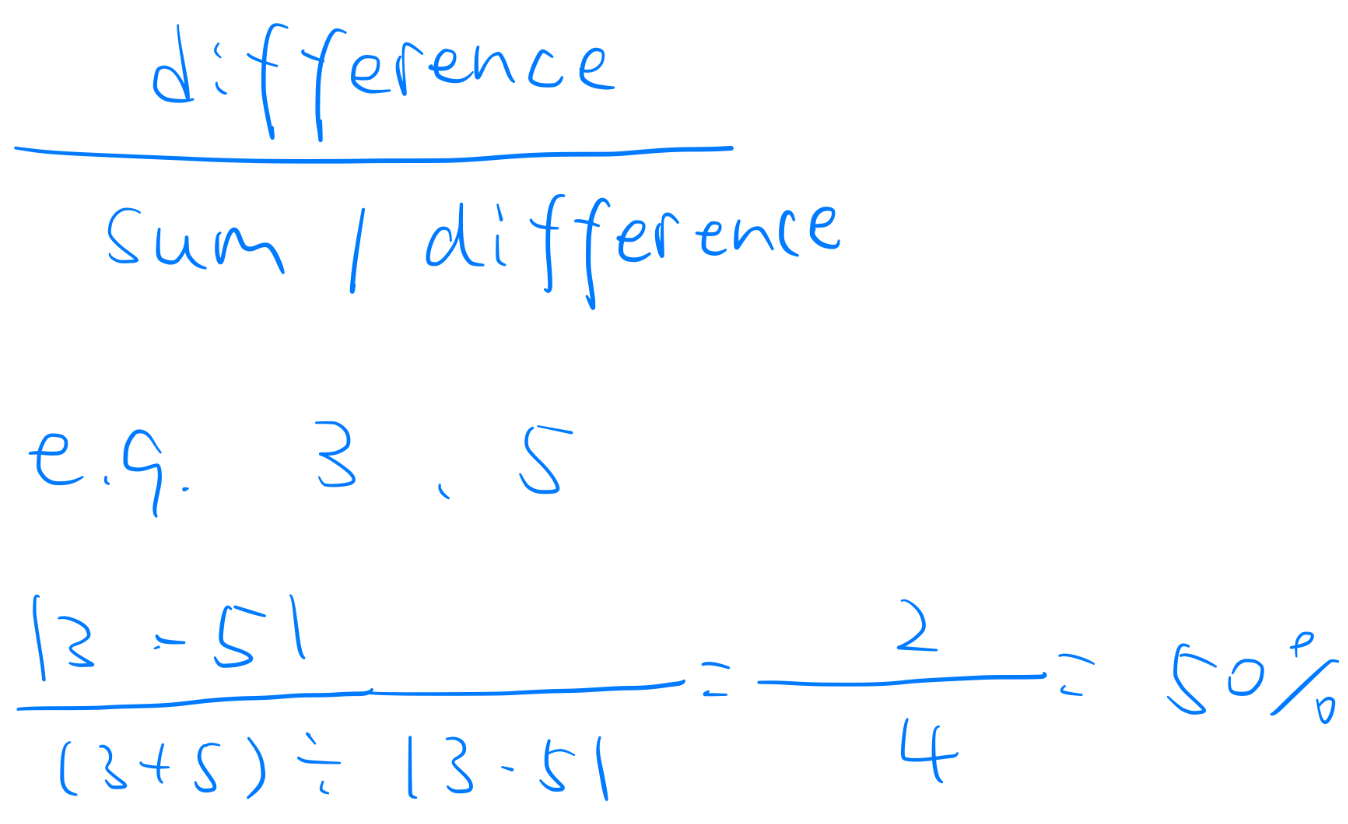 difference
sum / difference
e.g. 3 、 5
|3 - 5|
(3+5) ÷ |3-5|
= 2
4
= 50%